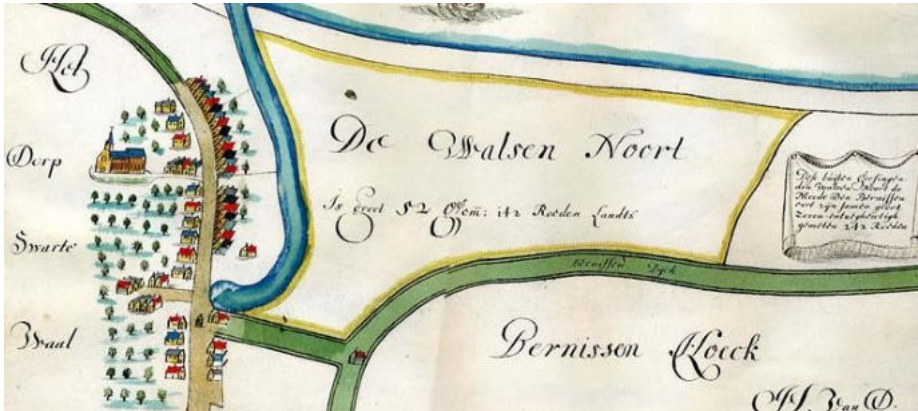 Het
Dorp
Swarte
Waal
De Walsen Noort
Is groot 52 Gem: 142 Roeden Landts
Bernissen Dyck
Bernisson Hoeck
Van D.
den Walsen Noort de
Meede den Bernissen
oort zyn samen groot
Zeven entzeghentigh
gemeten 242 Roeden